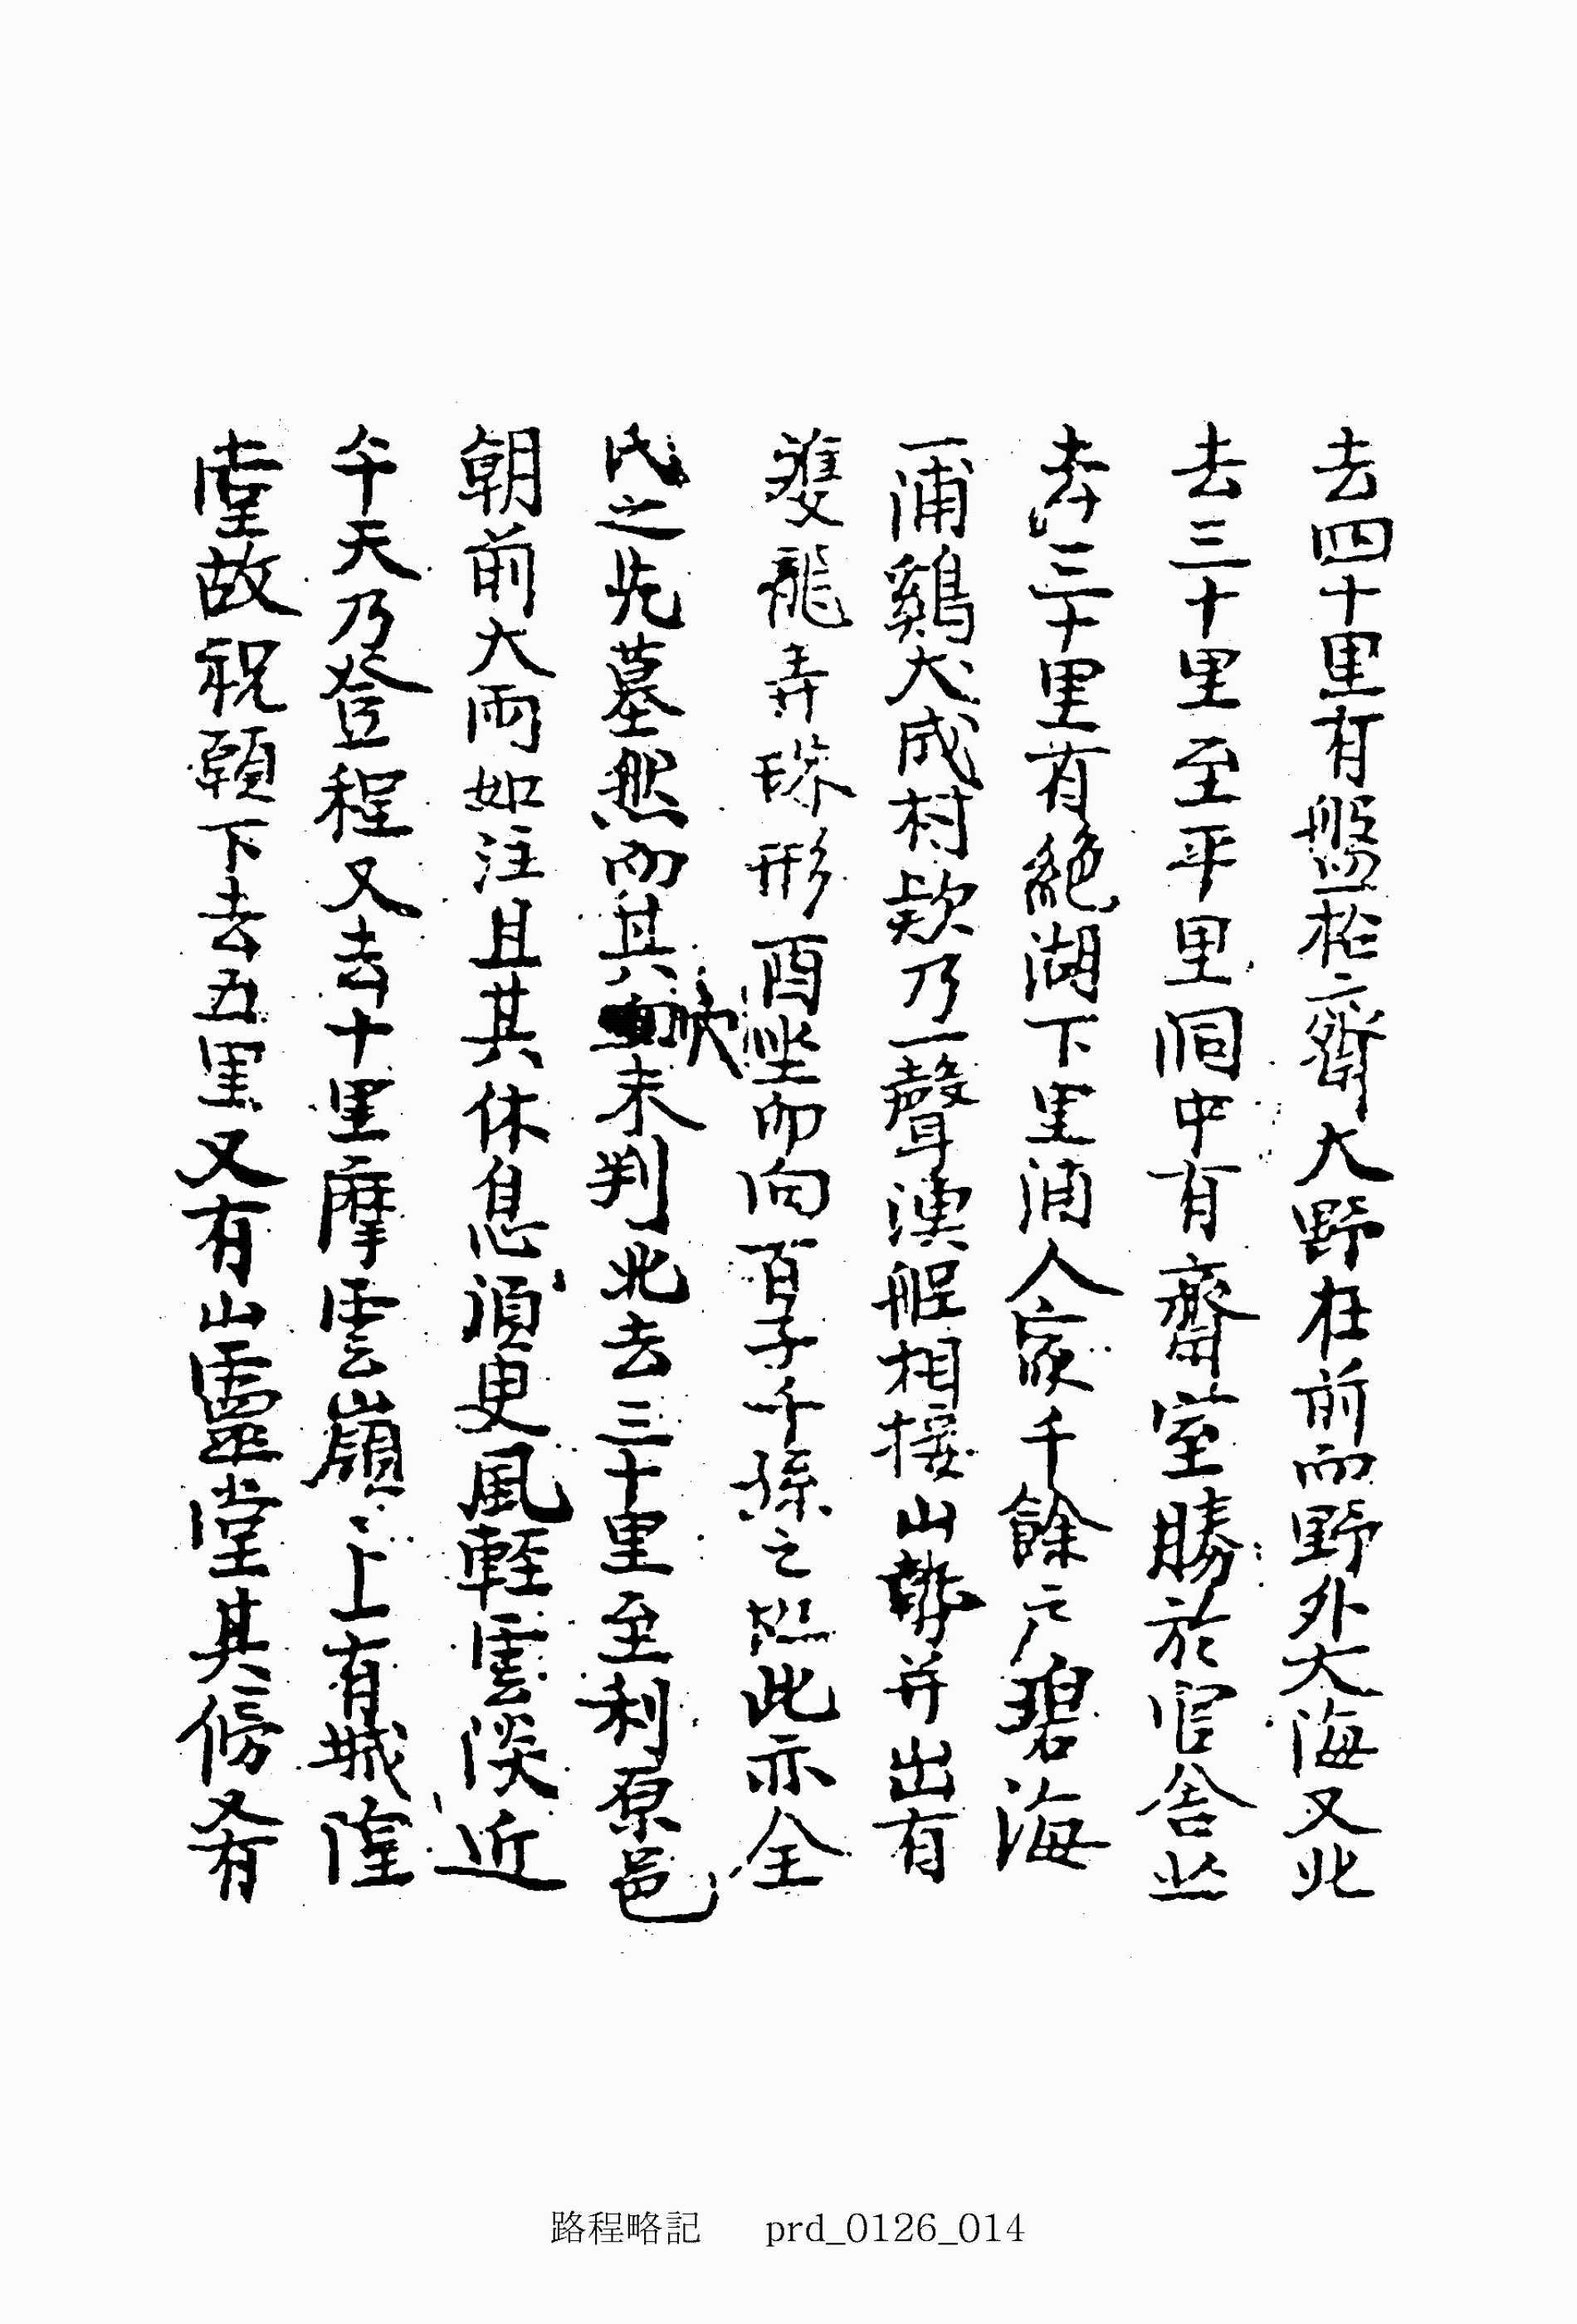 去四十里有盤松齋大野在前而野外大海又北
去三十里至平里洞中有齋室勝於官舍北
去三十里有絶湖下里浦人家千餘戶碧海
一浦鷄犬成村欵乃一聲漁艇相接山勢并出有
雙龍弄珠形酉坐而向百子千孫之此亦全
氏之先墓然而其未判北去三十里至利原邑
朝前大雨如注且其休息須更風輕雲淡近
午天乃登程又去十里摩雲嶺〻上有城隍
堂故祝願下去五里又有山靈堂其傍又有
路程略記 prd_0126_014